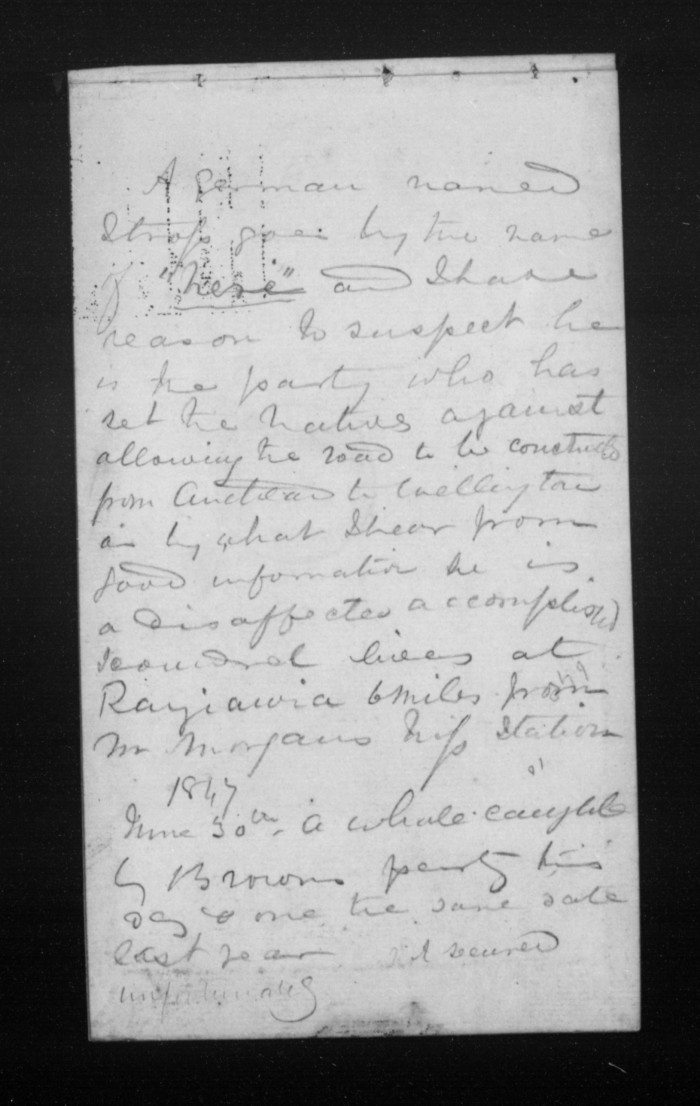 A German named
Stross goes by the name
of "Hesi" and I have
reason to suspect he
is the party who has
set the natives against
allowing the road to be constructed
from Auckland to Wellington
as by what I hear from
good information he is
a disaffected accomplished
scoundrel lives at
Rangiawia 6 miles from
Mr Morgans Miss Station
1847
June 30th. a whale caught
by Browns party this
day & one the same date
last year secured
unfortunately